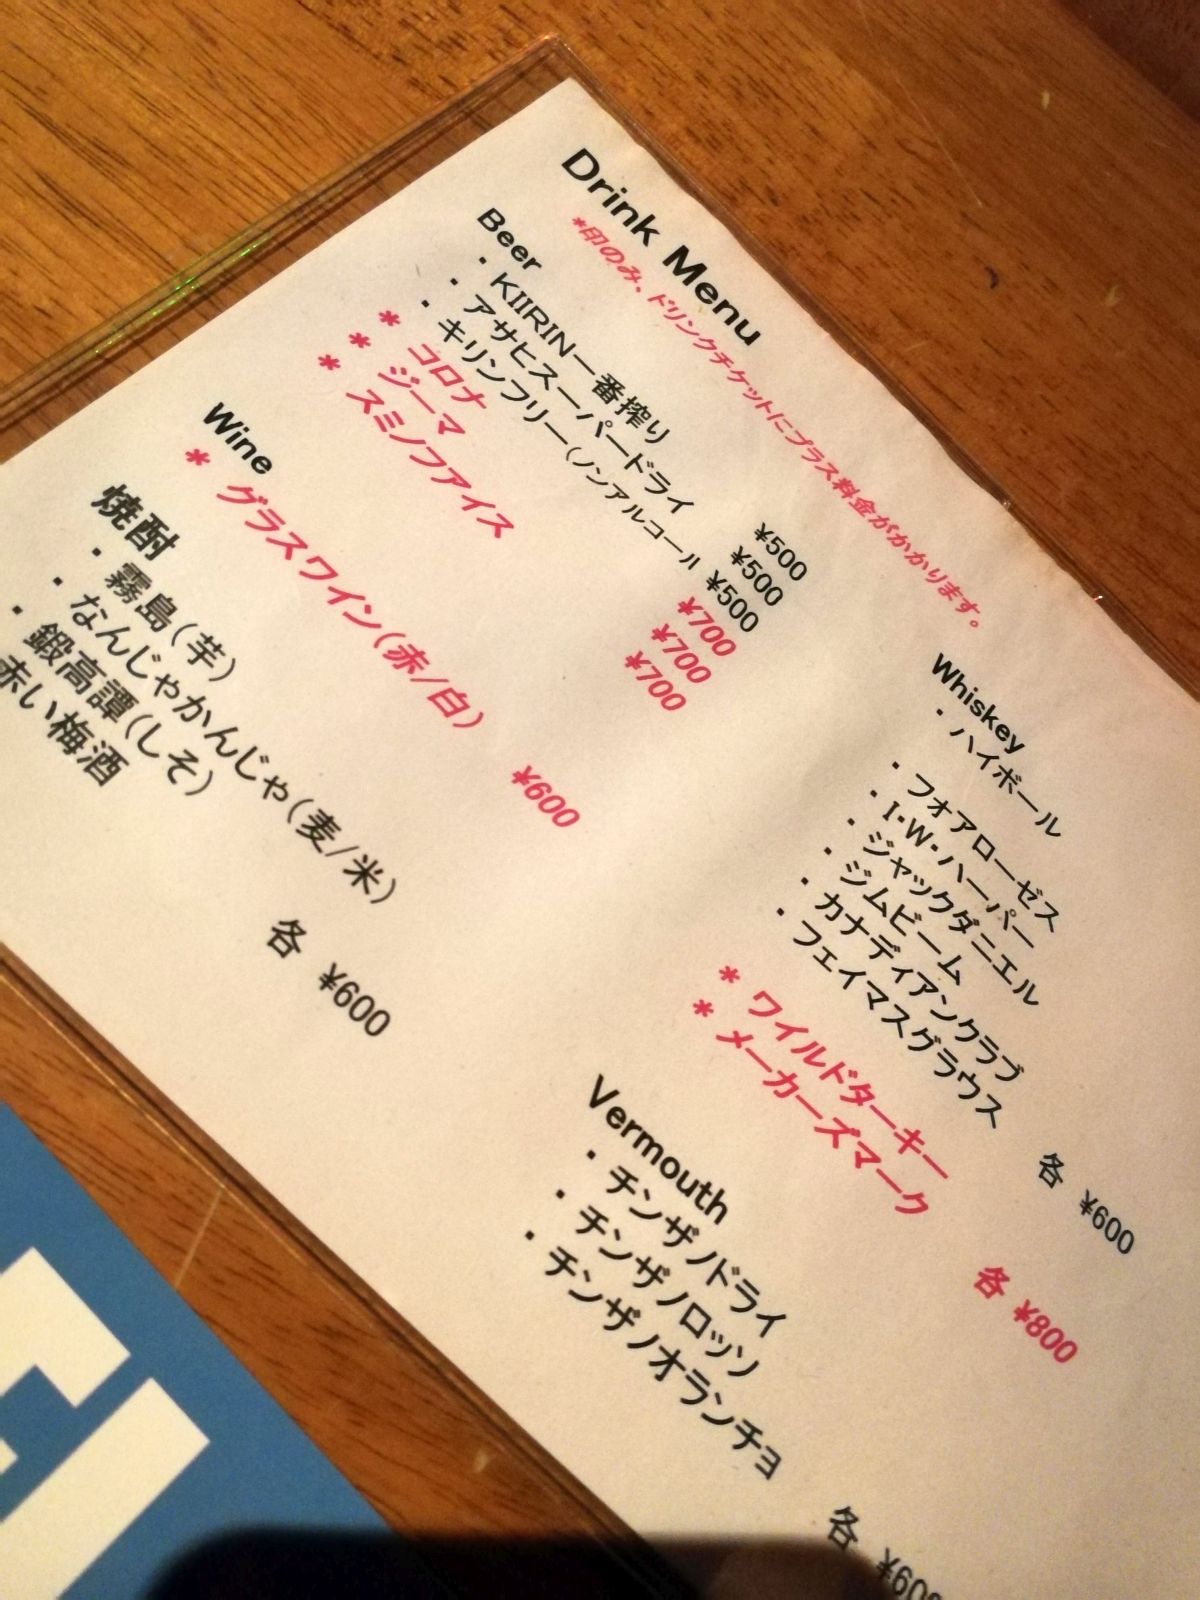 Drink Menu
*印のみ、ドリンクチケットにプラス料金がかかります。
Beer
・ KIIRIN一番搾り ¥500
・ アサヒスーパードライ ¥500
・ キリンフリー(ノンアルコール ¥500
* コロナ ¥700
* ジーマ ¥700
* スミノフアイス ¥700
Wine
* グラスワイン(赤/白) ¥600
焼酎
・ 霧島(芋)
・ なんじゃかんじゃ(麦/米)
・ 鍛高譚(しそ)
赤い梅酒
各 ¥600
Whiskey
・ ハイボール
・ フォアローゼス
・ I・W・ハーパー
・ ジャックダニエル
・ ジムビーム
・ カナディアンクラブ
・ フェイマスグラウス
各 ¥600
* ワイルドターキー
* メーカーズマーク
各 ¥800
Vermouth
・ チンザノドライ
・ チンザノロッソ
・ チンザノオランチョ
各 ¥600